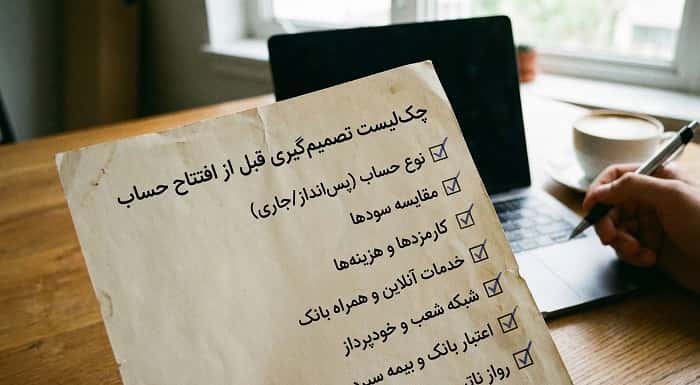 چک‌لیست تصمیم‌گیری قبل از افتتاح حساب
نوع حساب (پس‌انداز/جاری)
مقایسه سودها
کارمزدها و هزینه‌ها
خدمات آنلاین و همراه بانک
شبکه شعب و خودپرداز
اعتبار بانک و بیمه